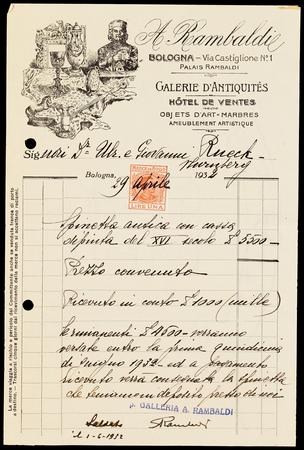 A. Rambaldi
BOLOGNA – Via Castiglione Nº 1
PALAIS RAMBALDI
GALERIE D'ANTIQUITÉS
HÔTEL DE VENTES
OBJETS D'ART - MARBRES
AMEUBLEMENT ARTISTIQUE
Signori Dr Ulr. e Giovanni Rueck
Nürnberg
Bologna, 29 Aprile 1932
LIRE UNA
Spinetta antica con cassa
dipinta del XVI secolo £ 5500 –
Prezzo convenuto
Ricevuto in conto £ 1000 (mille)
le rimanenti £ 4500 – verranno
versate entro la prima quindicina
di Giugno 1932 – ed a pagamento
ricevuto verrà consegnata la spinetta
che rimane in deposito presso di noi
p. GALLERIA A. RAMBALDI
Saldato Rambaldi
il 1-6-1932
La merce viaggia a rischio e pericolo del Committente anche se venduta franca di porto
a destino. - Trascorsi cinque giorni dal ricevimento della merce non si accettano reclami.